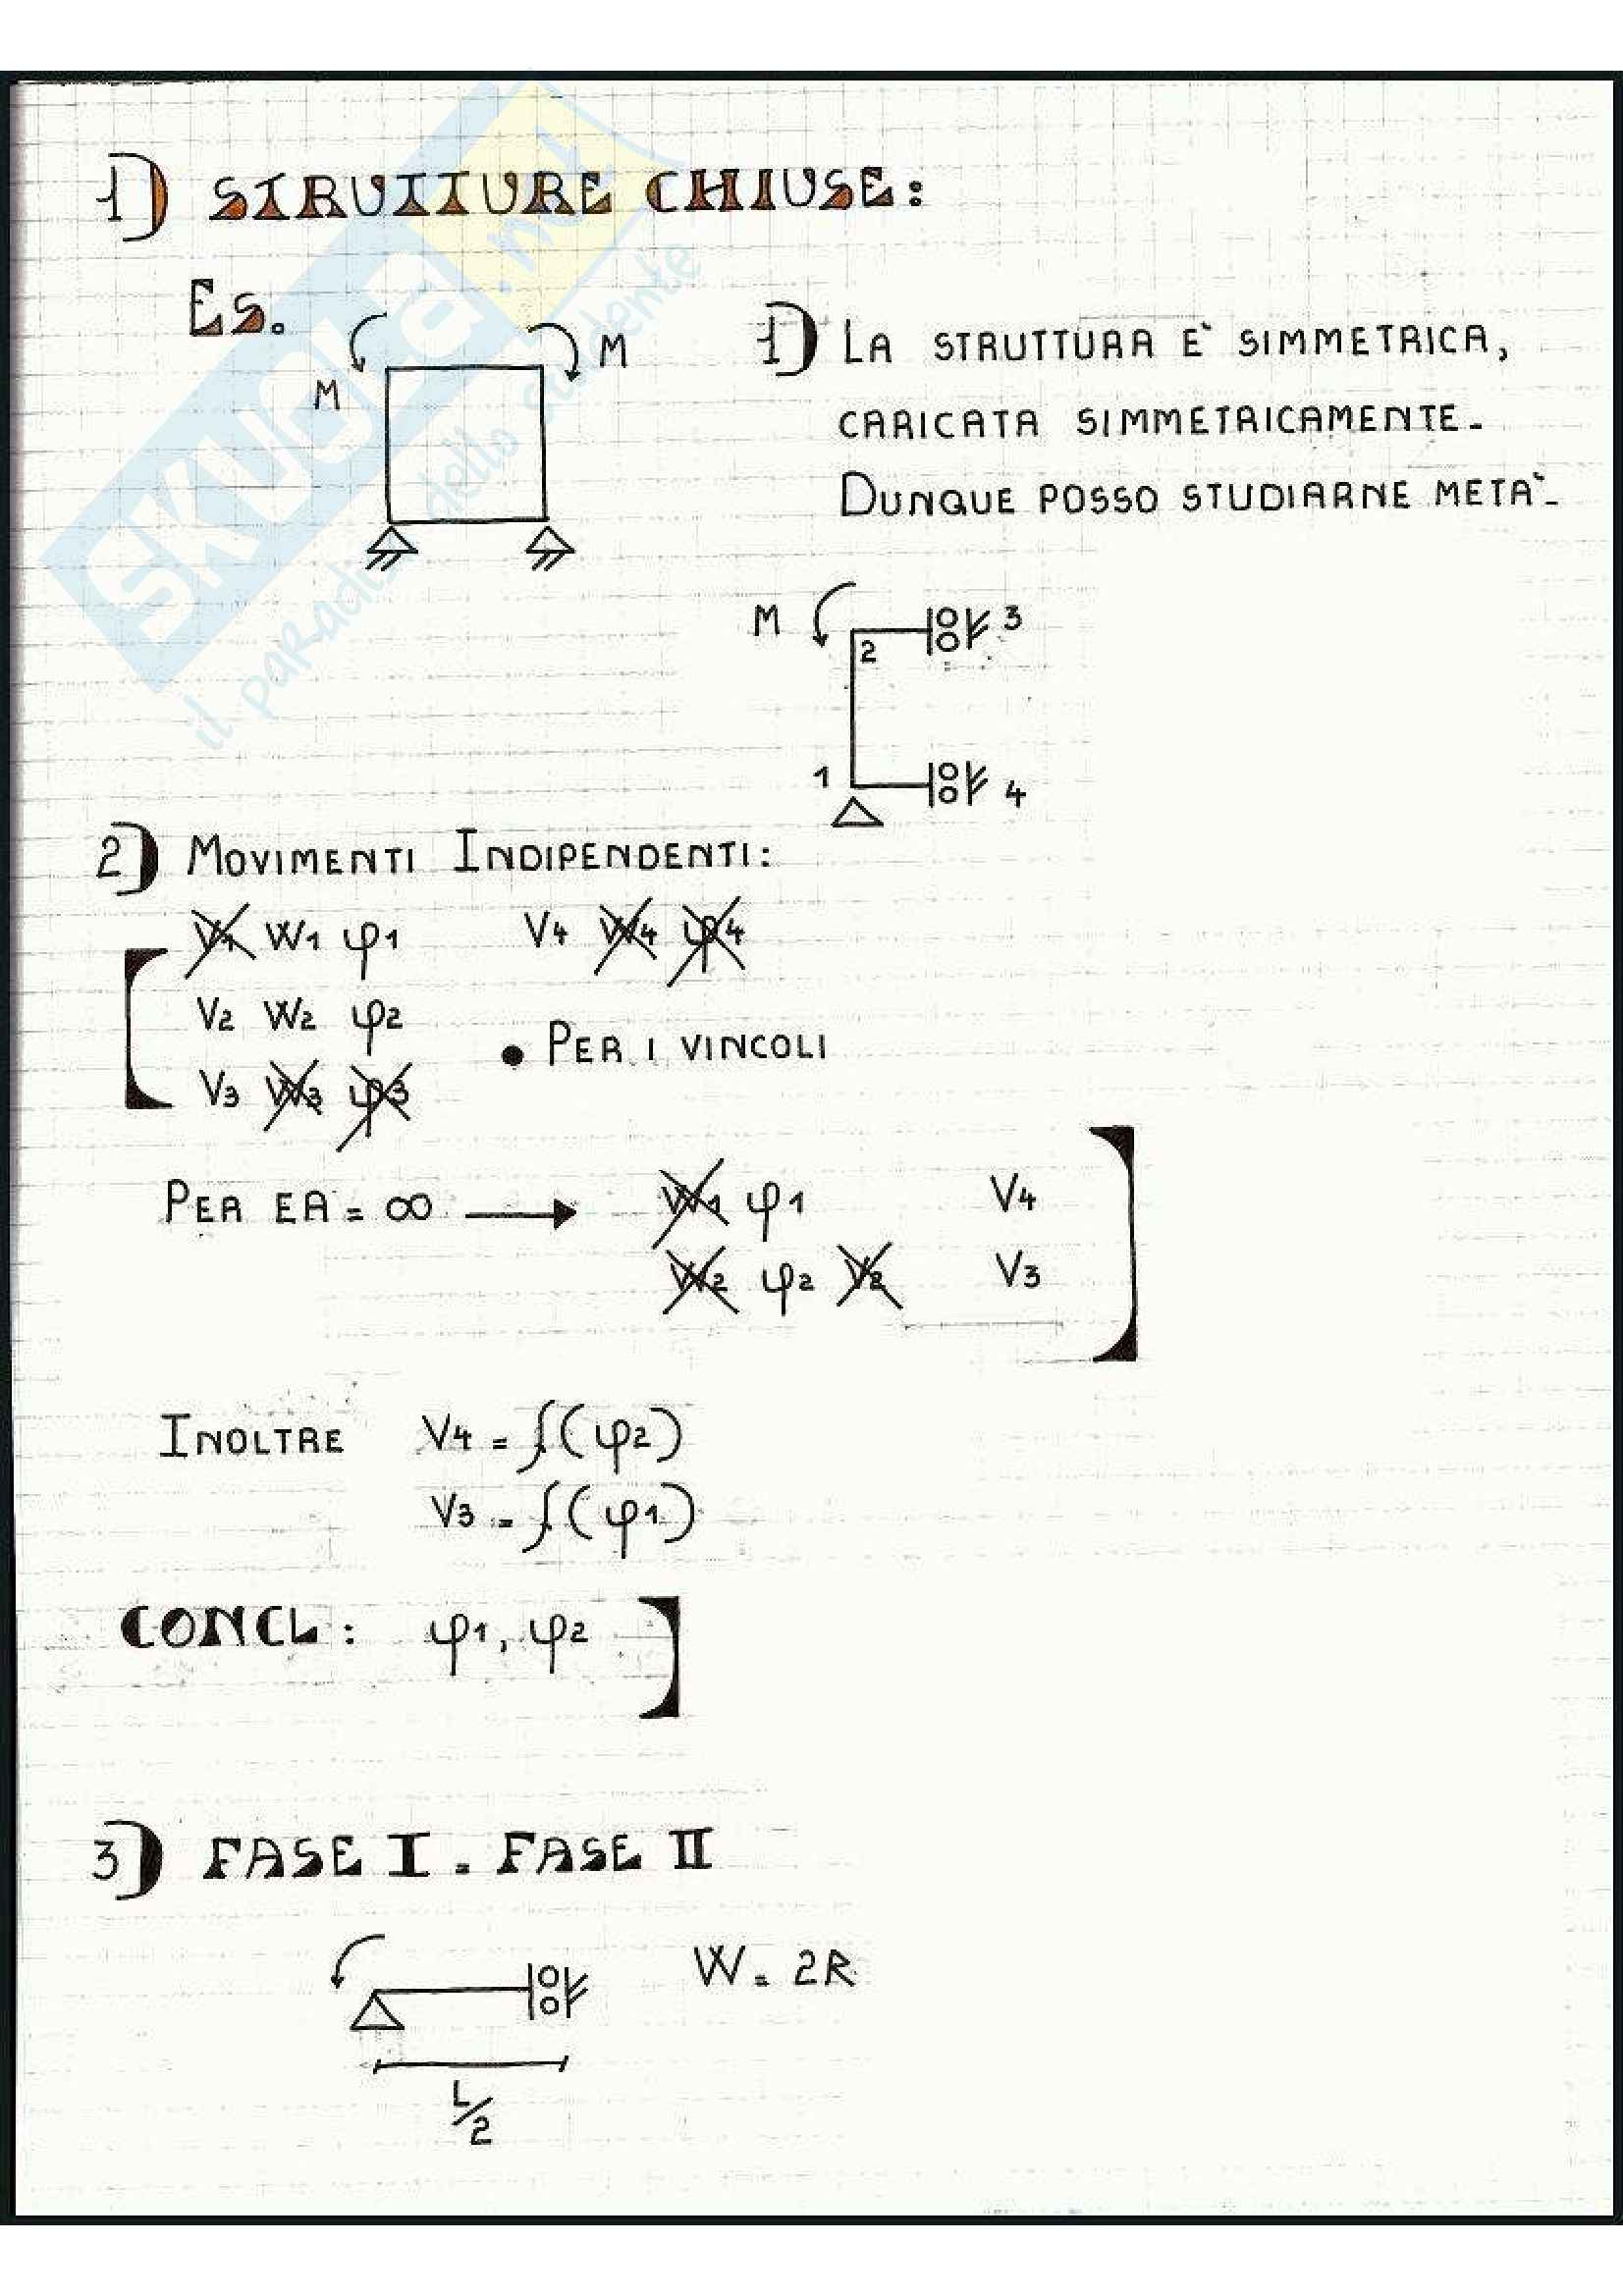 1) STRUTTURE CHIUSE:
ES.
M
M
1) LA STRUTTURA E' SIMMETRICA,
CARICATA SIMMETRICAMENTE.
DUNQUE POSSO STUDIARNE METÀ.
M
2
3
1
4
2) MOVIMENTI INDIPENDENTI:
V1 W1 φ1 V4 W4 φ4
V2 W2 φ2
• PER I VINCOLI
V3 W3 φ3
PER EA = ∞ → W1 φ1 V4
W2 φ2 V2 V3
INOLTRE V4 = f(φ2)
V3 = f(φ1)
CONCL: φ1, φ2
3) FASE I. FASE II
W = 2R
L/2
SKUOLA.net
il paradiso dello studente